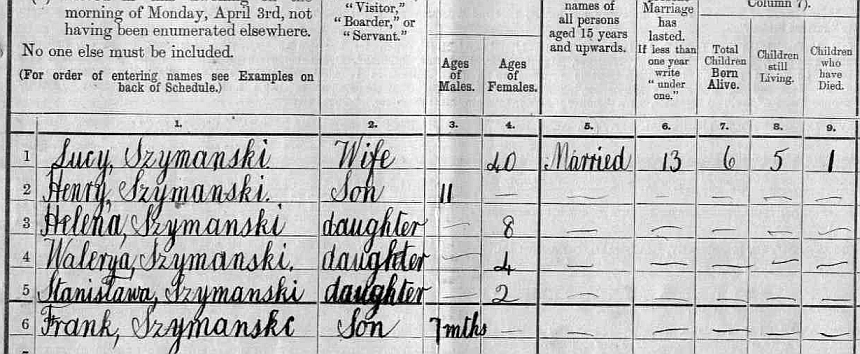 morning of Monday, April 3rd, not
having been enumerated elsewhere.
No one else must be included.
(For order of entering names see Examples on
back of Schedule.)
"Visitor,"
"Boarder," or
"Servant."
Ages
of
Males.
Ages
of
Females.
names of
all persons
aged 15 years
and upwards.
Marriage
has
lasted.
If less than
one year
write
"under
one."
Column 7).
Total
Children
Born
Alive.
Children
still
Living.
Children
who
have
Died.
1. 2. 3. 4. 5. 6. 7. 8. 9.
1 Lucy, Szymanski Wife 40 Married 13 6 5 1
2 Henry, Szymanski. Son 11 — — — — — —
3 Helena, Szymanski daughter — 8 — — — — —
4 Walerya, Szymanski. daughter — 4 — — — — —
5 Stanisława, Szymanski daughter — 2 — — — — —
6 Frank, Szymanski Son 7 mths — — — — — —